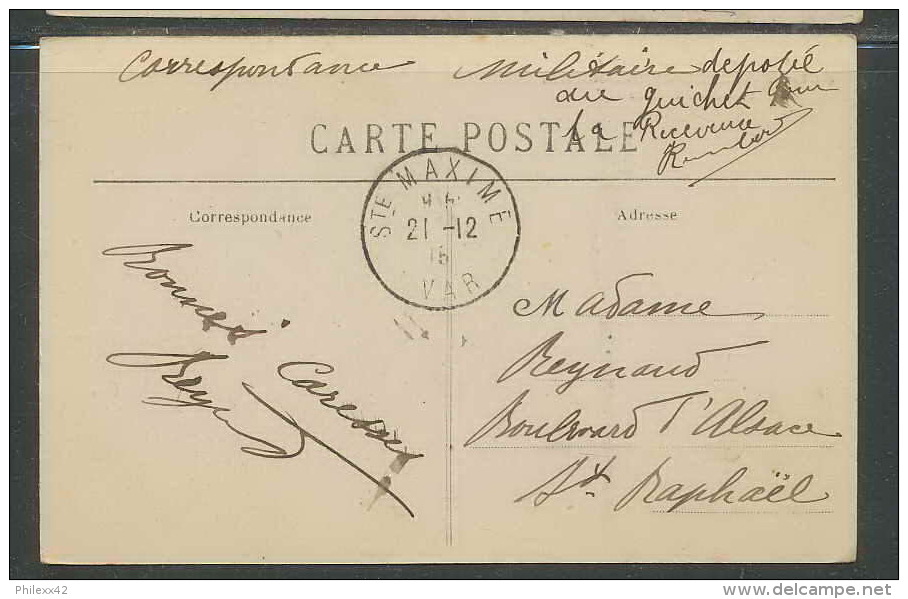 Correspondance Militaire deposée
au guichet Pour
la Receveuse
CARTE POSTALE
STE MAXIME
21 -12
15
VAR
Correspondance
Adresse
Bonnes Caresses
Reynaud
Madame
Reynaud
Boulevard d'Alsace
St. Raphaël
Philexx42
www.delcampe.net